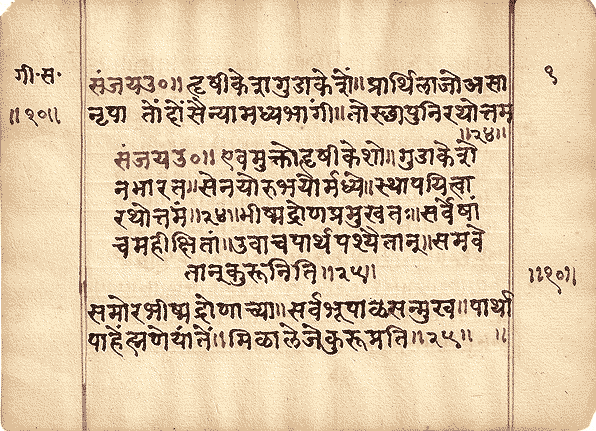 गी॰स॰
॥१०॥
१
संजयउ०॥ हृषीकेशा गुडाकेशें॥ प्रार्थिला जो असा
नृपा तो दों सैन्यामध्यभागी॥ तो स्छापुनि रथोत्तम
॥२४॥
संजयउ०॥ एवमुक्तो हृषीकेशो॥ गुडाकेशे
नभारत॥ सेनयोरुभयोर्मध्ये॥ स्थापयित्वा
रथोत्तमं॥२४॥ भीष्मद्रोणप्रमुखतः॥ सर्वेषां
चमहीक्षितां॥ उवाचपार्थपश्यैतान्॥ समवे
तान्कुरूनिति॥२५॥
समोर भीष्मद्रोणाच्या॥ सर्वभूपाळसन्मुख॥ पार्था
पाहें ह्मणे यांतें॥ मिळाले जे कुरूमति॥२५॥ ॥
॥१०॥